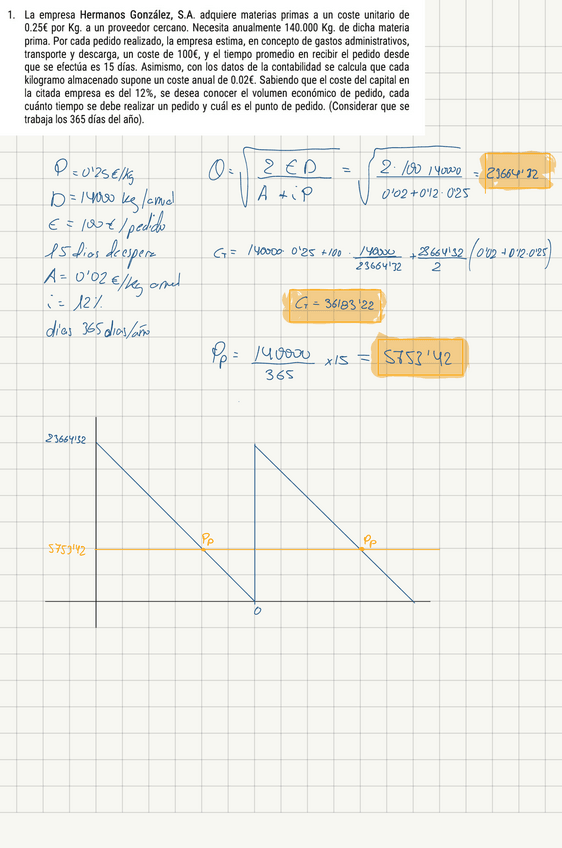 1. La empresa Hermanos González, S.A. adquiere materias primas a un coste unitario de
0.25€ por Kg. a un proveedor cercano. Necesita anualmente 140.000 Kg. de dicha materia
prima. Por cada pedido realizado, la empresa estima, en concepto de gastos administrativos,
transporte y descarga, un coste de 100€, y el tiempo promedio en recibir el pedido desde
que se efectúa es 15 días. Asimismo, con los datos de la contabilidad se calcula que cada
kilogramo almacenado supone un coste anual de 0.02€. Sabiendo que el coste del capital en
la citada empresa es del 12%, se desea conocer el volumen económico de pedido, cada
cuánto tiempo se debe realizar un pedido y cuál es el punto de pedido. (Considerar que se
trabaja los 365 días del año).
P = 0'25 €/kg
D = 14000 kg/anual
E = 100 €/pedido
15 dias de espera
A = 0'02 €/kg anual
i = 12%
dias 365 dias/año
Q = √(2 E D / A + i P) = √(2 · 100 14000 / 0'02 + 0'12 · 0'25) = 23664'32
CT = 140000 · 0'25 + 100 · 140000 / 23664'32 + 23664'32 / 2 (0'02 + 0'12·0'25)
CT = 36183'22
Pp = 140000 / 365 x 15 = 5753'42
23664'32
5753'42
Pp
Pp
0